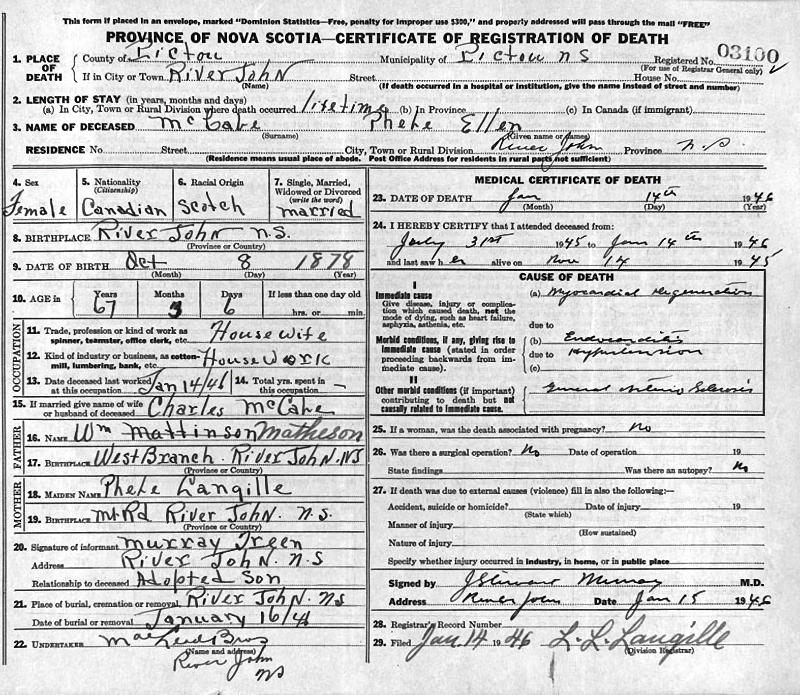 This form if placed in an envelope, marked "Dominion Statistics—Free, penalty for improper use $300," and properly addressed will pass through the mail "FREE"
PROVINCE OF NOVA SCOTIA—CERTIFICATE OF REGISTRATION OF DEATH
1. PLACE OF DEATH County of Pictou Municipality of Pictou NS Registered No. 03100
(For use of Registrar General only)
If in City or Town River John Street House No.
(Name) (If death occurred in a hospital or institution, give the name instead of street and number)
2. LENGTH OF STAY (in years, months and days)
(a) In City, Town or Rural Division where death occurred lifetime (b) In Province (c) In Canada (if immigrant)
3. NAME OF DECEASED McCabe Phebe Ellen
(Surname) (Given name or names)
RESIDENCE No Street City, Town or Rural Division River John Province N.S.
(Residence means usual place of abode. Post Office Address for residents in rural parts not sufficient)
4. Sex Female
5. Nationality (Citizenship) Canadian
6. Racial Origin Scotch
7. Single, Married, Widowed or Divorced (write the word) married
8. BIRTHPLACE River John N.S.
(Province or Country)
9. DATE OF BIRTH Oct 8 1878
(Month) (Day) (Year)
10. AGE in Years Months Days If less than one day old
67 3 6 hrs. or min.
OCCUPATION
11. Trade, profession or kind of work as spinner, teamster, office clerk, etc. House wife
12. Kind of industry or business, as cotton-mill, lumbering, bank, etc. House Work
13. Date deceased last worked at this occupation Jan 14/46 14. Total yrs. spent in this occupation —
15. If married give name of wife or husband of deceased Charles McCabe
FATHER
16. NAME Wm Mattinson Matheson
17. BIRTHPLACE West Branch River John. NS
(Province or Country)
MOTHER
18. MAIDEN NAME Phebe Langille
19. BIRTHPLACE Mt Rd River John. N.S.
(Province or Country)
20. Signature of informant Murray Green
Address River John. N.S
Relationship to deceased Adopted Son
21. Place of burial, cremation or removal River John. NS
Date of burial or removal January 16/46
22. UNDERTAKER MacLeod Bros
(Name and address)
River John
NS
MEDICAL CERTIFICATE OF DEATH
23. DATE OF DEATH Jan 14th 1946
(Month) (Day) (Year)
24. I HEREBY CERTIFY that I attended deceased from:
July 31st 1945 to Jan 14th 1946
and last saw her alive on Nov 14 1945
CAUSE OF DEATH
I
Immediate cause (a) Myocardial degeneration
Give disease, injury or complication which caused death, not the mode of dying, such as heart failure, asphyxia, asthenia, etc.
due to
Morbid conditions, if any, giving rise to immediate cause (stated in order proceeding backwards from immediate cause). (b) Endocarditis
due to Hypertension
(c)
II
Other morbid conditions (if important) contributing to death but not causally related to immediate cause. General Arterio Sclerosis
25. If a woman, was the death associated with pregnancy? No
26. Was there a surgical operation? No Date of operation 19
State findings Was there an autopsy? No
27. If death was due to external causes (violence) fill in also the following:—
Accident, suicide or homicide? Date of injury 19
(State which)
Manner of injury
(How sustained)
Nature of injury
Specify whether injury occurred in industry, in home, or in public place
Signed by J Stewart Murray M.D.
Address River John Date Jan 15 1946
28. Registrar's Record Number
29. Filed Jan. 14 1946 L. L. Langille
(Division Registrar)